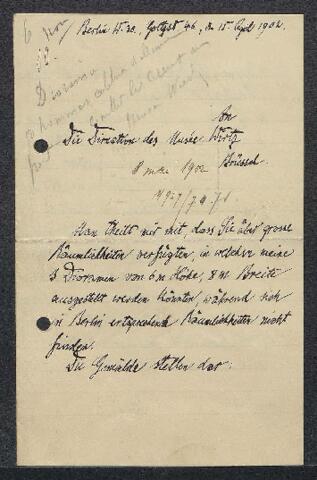 Berlin W. 30. Goltzst 46, d. 15. April 1902.
An
Die Direction des Musée Wirtz
Brüssel.
8 mai 1902
Man theilt mir mit, dass Sie über grosse
Räumlichkeiten verfügten, in welchen meine
3 Dioramen von 6 m Höhe, 8 m Breite
ausgestellt werden könnten, während sich
in Berlin entsprechende Räumlichkeiten nicht
finden.
Die Gemälde stellen dar: